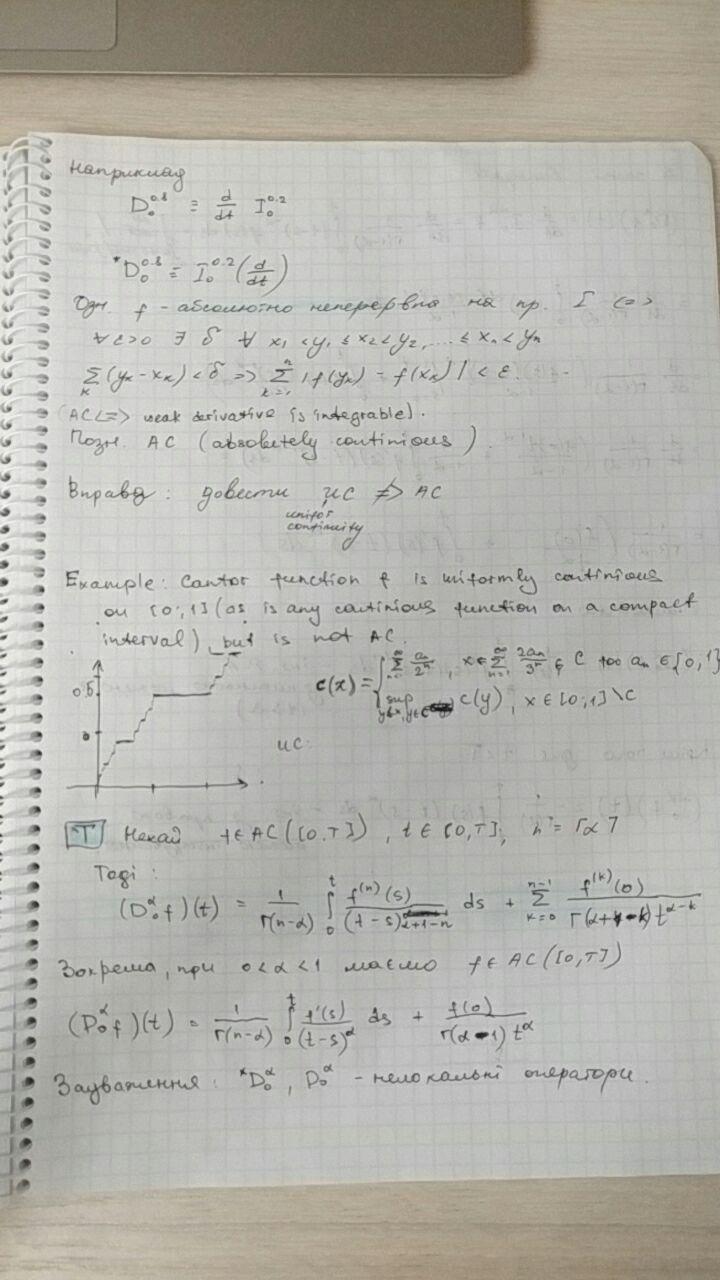 Наприклад
D₀^0.8 ≡ d/dt I₀^0.2
*D₀^0.8 ≡ I₀^0.2 (d/dt)
Озн. f - абсолютно неперервна на пр. I <=>
∀ε>0 ∃ δ ∀ x₁ < y₁ ≤ x₂ < y₂, ... ≤ xₙ < yₙ
∑_k (y_k - x_k) < δ => ∑_{k=1}^n |f(y_k) - f(x_k)| < ε.
(AC <=> weak derivative is integrable).
Позн. AC (absolutely continious)
Вправа: довести UC ≠> AC
unifor
continuity
Example: Cantor function f is uniformly continious
on [0;1] (as is any continious function on a compact
interval), but is not AC.
c(x) = { ∑_{n=1}^∞ aₙ/2ⁿ, x = ∑_{n=1}^∞ 2aₙ/3ⁿ ∈ C for aₙ ∈ {0,1}
sup_{y≤x, y∈C} c(y), x ∈ [0;1] \ C
0.5
UC:
T Нехай f ∈ AC([0,T]), t ∈ [0,T], n = ⌈α⌉
Тоді:
(D₀^α f)(t) = 1/Γ(n-α) ∫₀^t f^(n)(s)/(t-s)^{α+1-n} ds + ∑_{k=0}^{n-1} f^(k)(0)/Γ(α+1-k) t^{α-k}
Зокрема, при 0<α<1 маємо f ∈ AC([0,T])
(D₀^α f)(t) = 1/Γ(n-α) ∫₀^t f'(s)/(t-s)^α ds + f(0)/Γ(α-1) t^α
Зауваження: *D₀^α, D₀^α - нелокальні оператори.